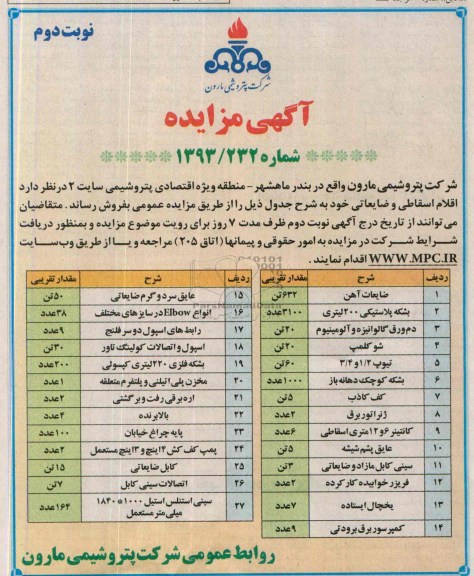 نوبت دوم
شرکت پتروشیمی مارون
آگهی مزایده
***** شماره ۱۳۹۳/۲۳۲ *****
شرکت پتروشیمی مارون واقع در بندر ماهشهر - منطقه ویژه اقتصادی پتروشیمی سایت ۲ در نظر دارد
اقلام اسقاطی و ضایعاتی خود به شرح جدول ذیل را از طریق مزایده عمومی بفروش رساند. متقاضیان
می‌توانند از تاریخ درج آگهی نوبت دوم ظرف مدت ۷ روز برای رویت موضوع مزایده و بمنظور دریافت
شرایط شرکت در مزایده به امور حقوقی و پیمانها (اتاق ۲۰۵) مراجعه و یا از طریق وب سایت
WWW.MPC.IR اقدام نمایند.
ردیف شرح مقدار تقریبی
۱ ضایعات آهن ۶۳۲تن
۲ بشکه پلاستیکی ۲۰۰لیتری ۳۱۰۰عدد
۳ دم ورق گالوانیزه و آلومینیوم ۲۰تن
۴ شو کلمپ ۲۰تن
۵ تیوپ ۱/۲ و ۳/۴ ۶۰تن
۶ بشکه کوچک دهانه باز ۱۰۰۰عدد
۷ کف کاذب ۵تن
۸ ژنراتور برق ۲عدد
۹ کانتینر ۶ و ۱۲متری اسقاطی ۶عدد
۱۰ عایق پشم شیشه ۵تن
۱۱ سینی کابل مازاد و ضایعاتی ۳تن
۱۲ فریزر خوابیده کار کرده ۲عدد
۱۳ یخچال ایستاده ۷عدد
۱۴ کمپرسور برق برودتی ۹عدد
ردیف شرح مقدار تقریبی
۱۵ عایق سرد و گرم ضایعاتی ۵۰تن
۱۶ انواع Elbow در سایز های مختلف ۳۸عدد
۱۷ رابط های اسپول دو سر فلنج ۹عدد
۱۸ اسپول و اتصالات کولینگ تاور ۳۰تن
۱۹ بشکه فلزی ۲۲۰لیتری کپسولی ۲۰۰عدد
۲۰ مخزن پلی اتیلنی و پلتفرم متعلقه ۱عدد
۲۱ اره برقی رفت و برگشتی ۲عدد
۲۲ بالابرنده ۴عدد
۲۳ پایه چراغ خیابان ۱۰۰عدد
۲۴ پمپ کف کش ۴اینچ و ۳اینچ مستعمل ۲عدد
۲۵ کابل ضایعاتی ۱۵تن
۲۶ اتصالات سینی کابل ۷تن
۲۷ سینی استنلس استیل ۱۰۰۰*۱۸۴۰ ۱۶۴عدد
میلی متر مستعمل
روابط عمومی شرکت پتروشیمی مارون